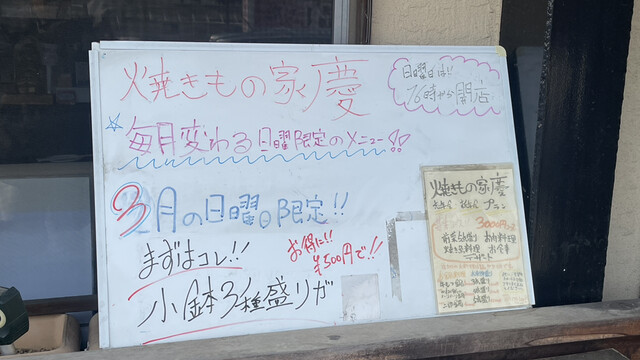 焼きもの家慶
日曜日は!!
16時から開店
☆毎月変わる日曜限定のメニュー!!
3月の日曜日限定!!
まずはコレ!!
お得に!!
¥500円で!!
小鉢3種盛りが
焼きもの家慶
プラン
3000円
前菜5点盛り お肉料理
お食事
デザート